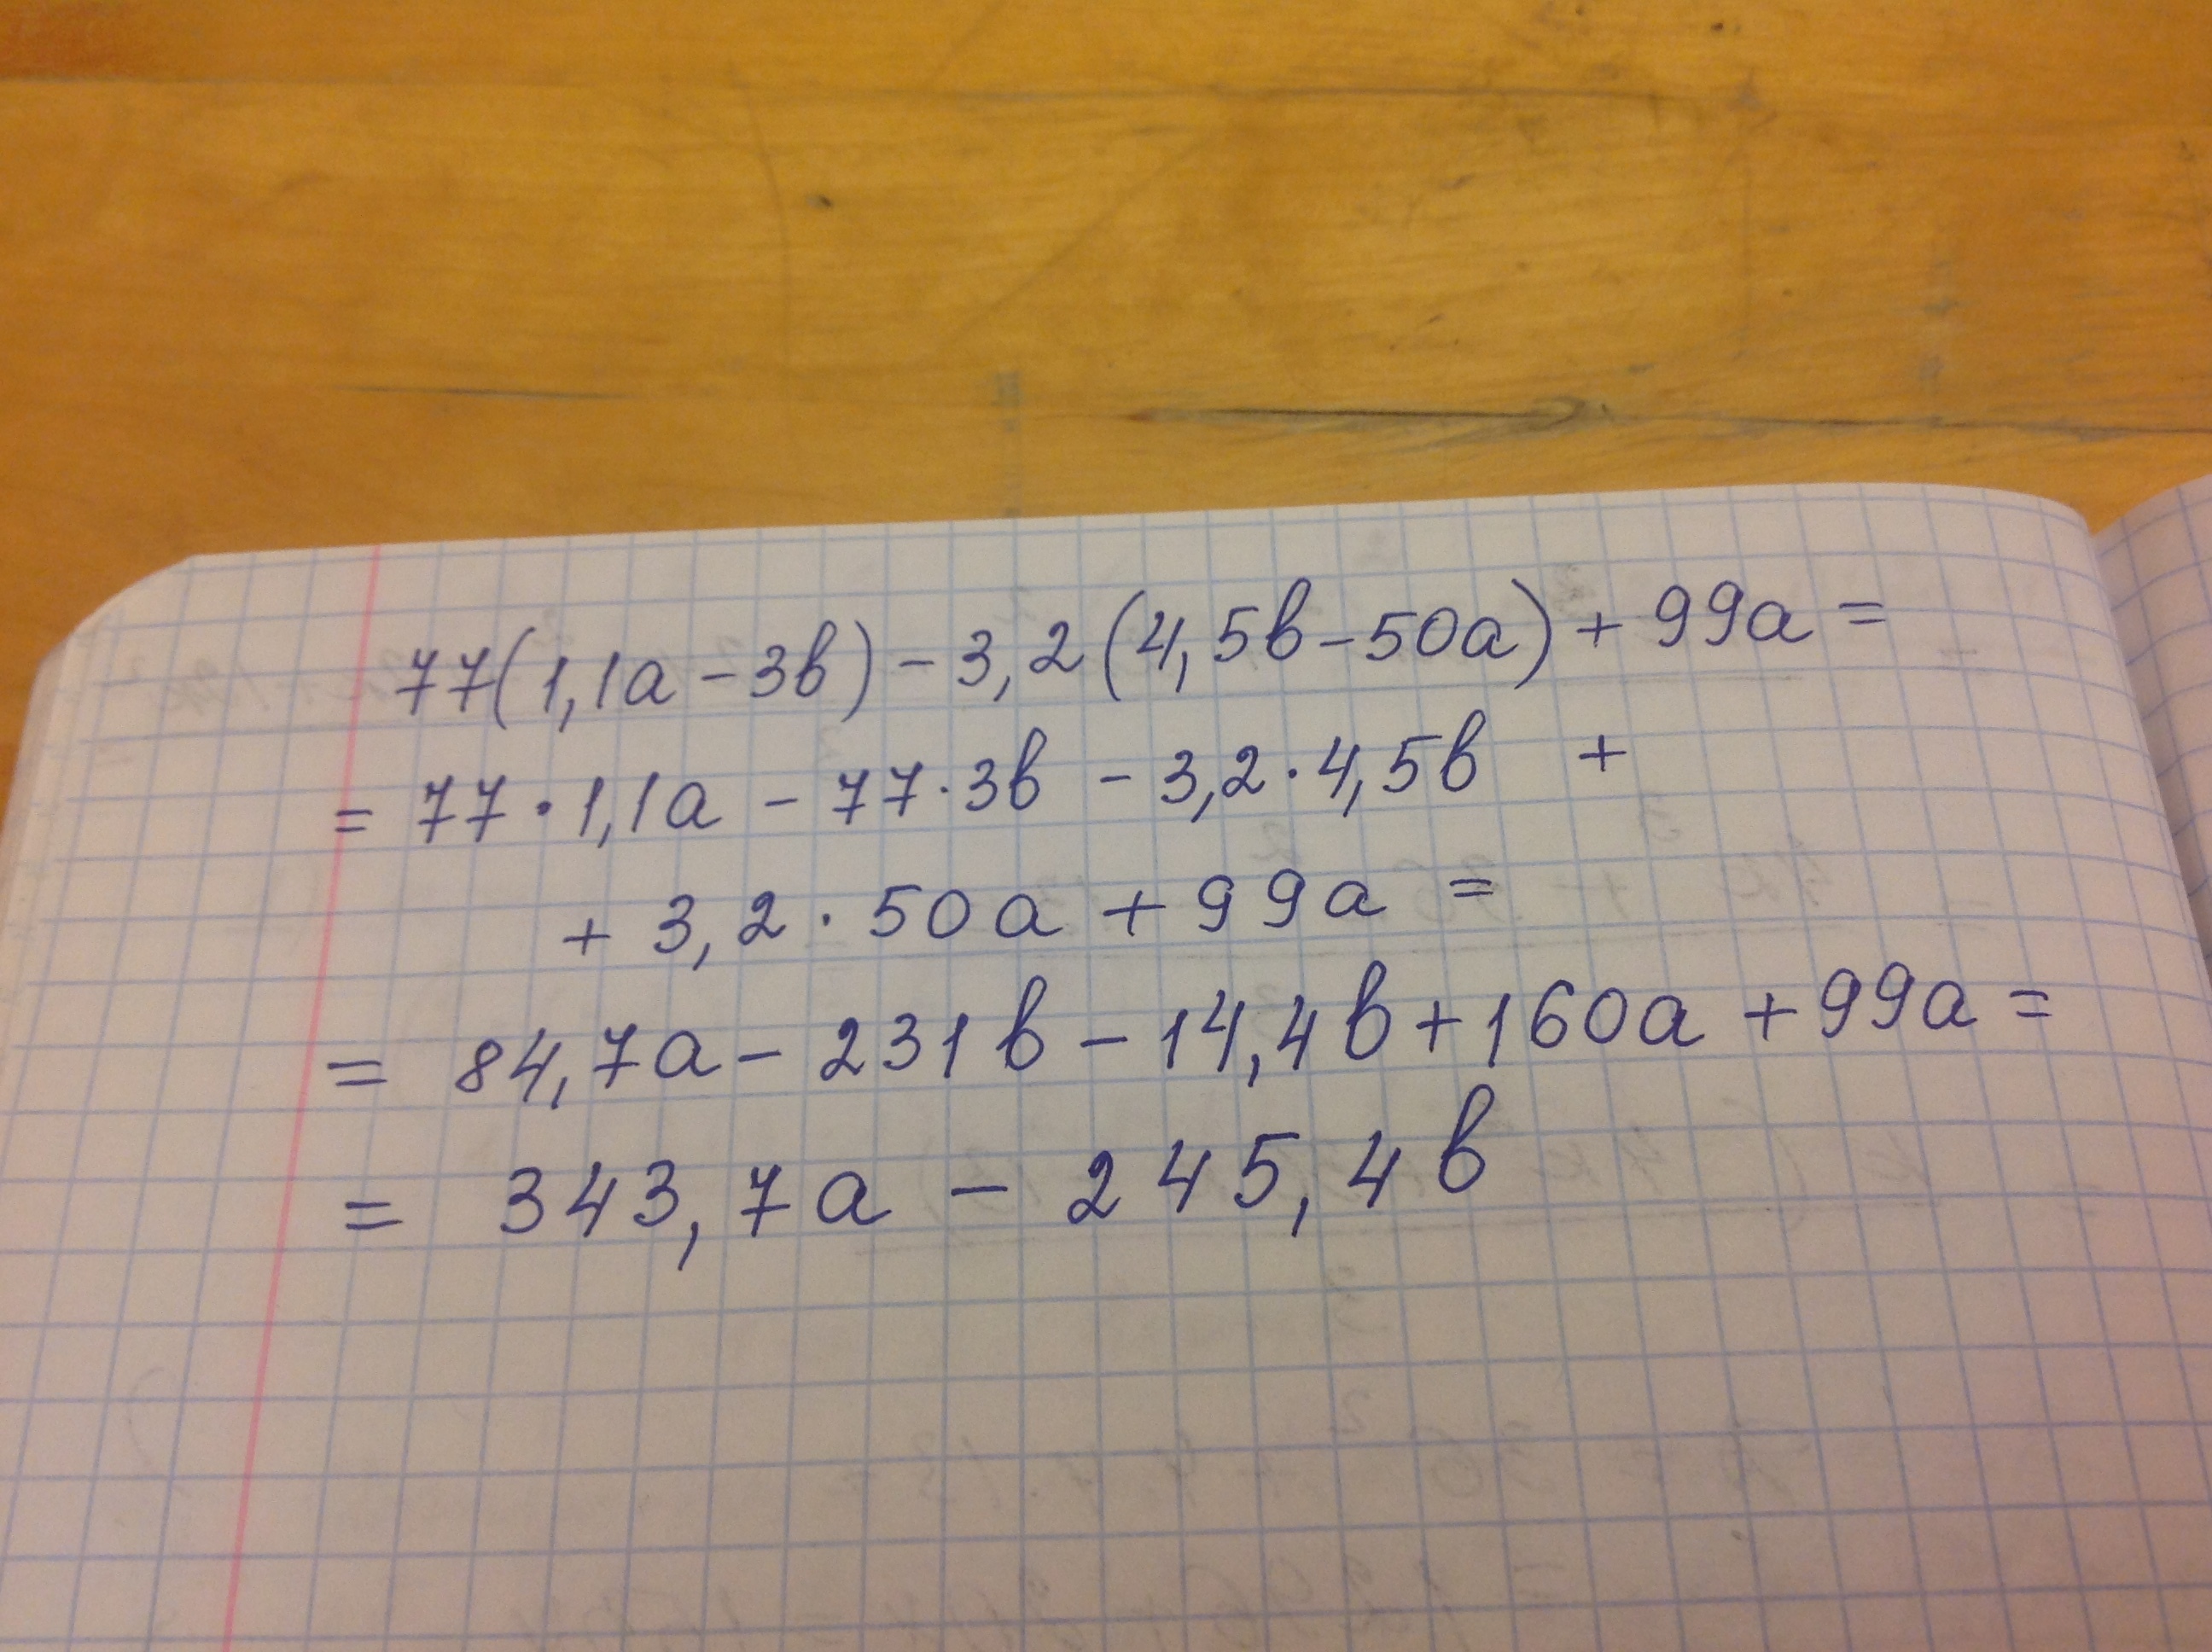 77(1,1a - 3b) - 3,2(4,5b - 50a) + 99a =
= 77 · 1,1a - 77 · 3b - 3,2 · 4,5b +
+ 3,2 · 50a + 99a =
= 84,7a - 231b - 14,4b + 160a + 99a =
= 343,7a - 245,4b